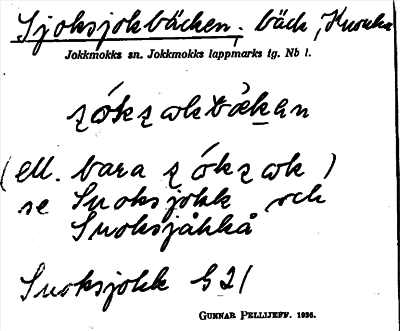 Sjoksjokbäcken, bäck, Kvouka
Jokkmokks sn. Jokkmokks lappmarks tg. Nb l.
ʒókʒokbäkən
(ell. bara ʒókʒok)
se Snoksjokk och
Snoksjåkkå
Snoksjokk S 21
GUNNAR PELLIJEFF. 1936.